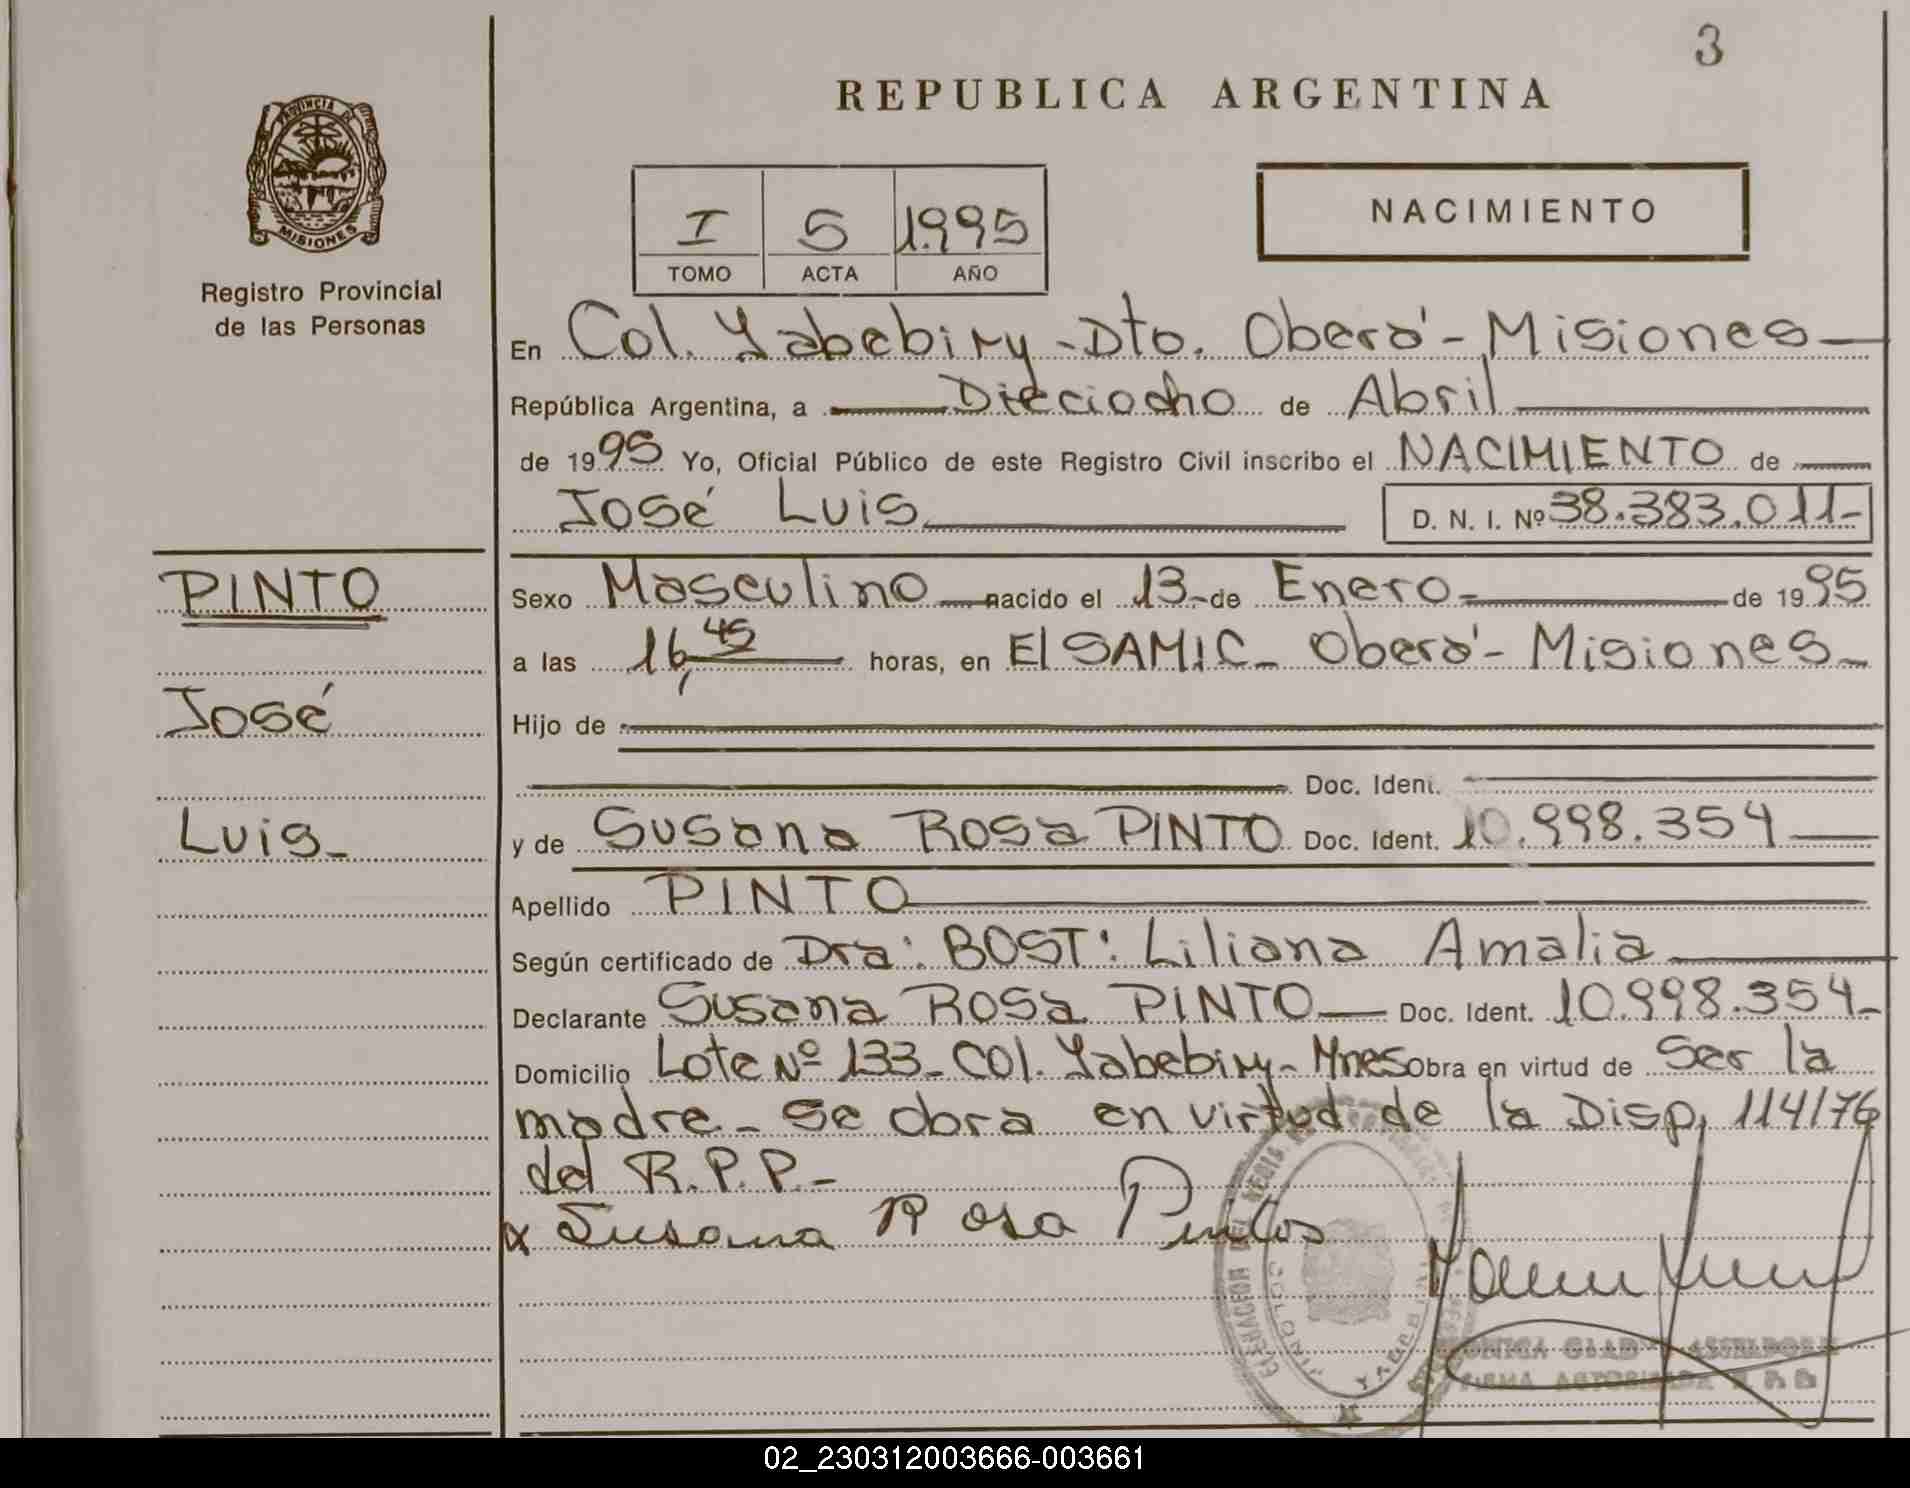 3
REPUBLICA ARGENTINA
PROVINCIA DE
MISIONES
Registro Provincial
de las Personas
I 5 1995
TOMO ACTA AÑO
NACIMIENTO
En Col. Yabebiry - Dto. Oberá - Misiones
República Argentina, a Dieciocho de Abril
de 1995 Yo, Oficial Público de este Registro Civil inscribo el NACIMIENTO de
José Luis D. N. I. Nº 38.383.011-
PINTO
José
Luis-
Sexo Masculino nacido el 13- de Enero- de 1995
a las 16,45 horas, en El SAMIC- Oberá - Misiones-
Hijo de
Doc. Ident.
y de Susana Rosa PINTO Doc. Ident. 10.998.354
Apellido PINTO
Según certificado de Dra: BOST: Liliana Amalia
Declarante Susana Rosa PINTO Doc. Ident. 10.998.354-
Domicilio Lote Nº 133- Col. Yabebiry- Mnes Obra en virtud de Ser la
madre- Se obra en virtud de la Disp, 114/76
del R.P.P.-
x Susana Rosa Pintos
COLONIA YABEBIRY
02_230312003666-003661